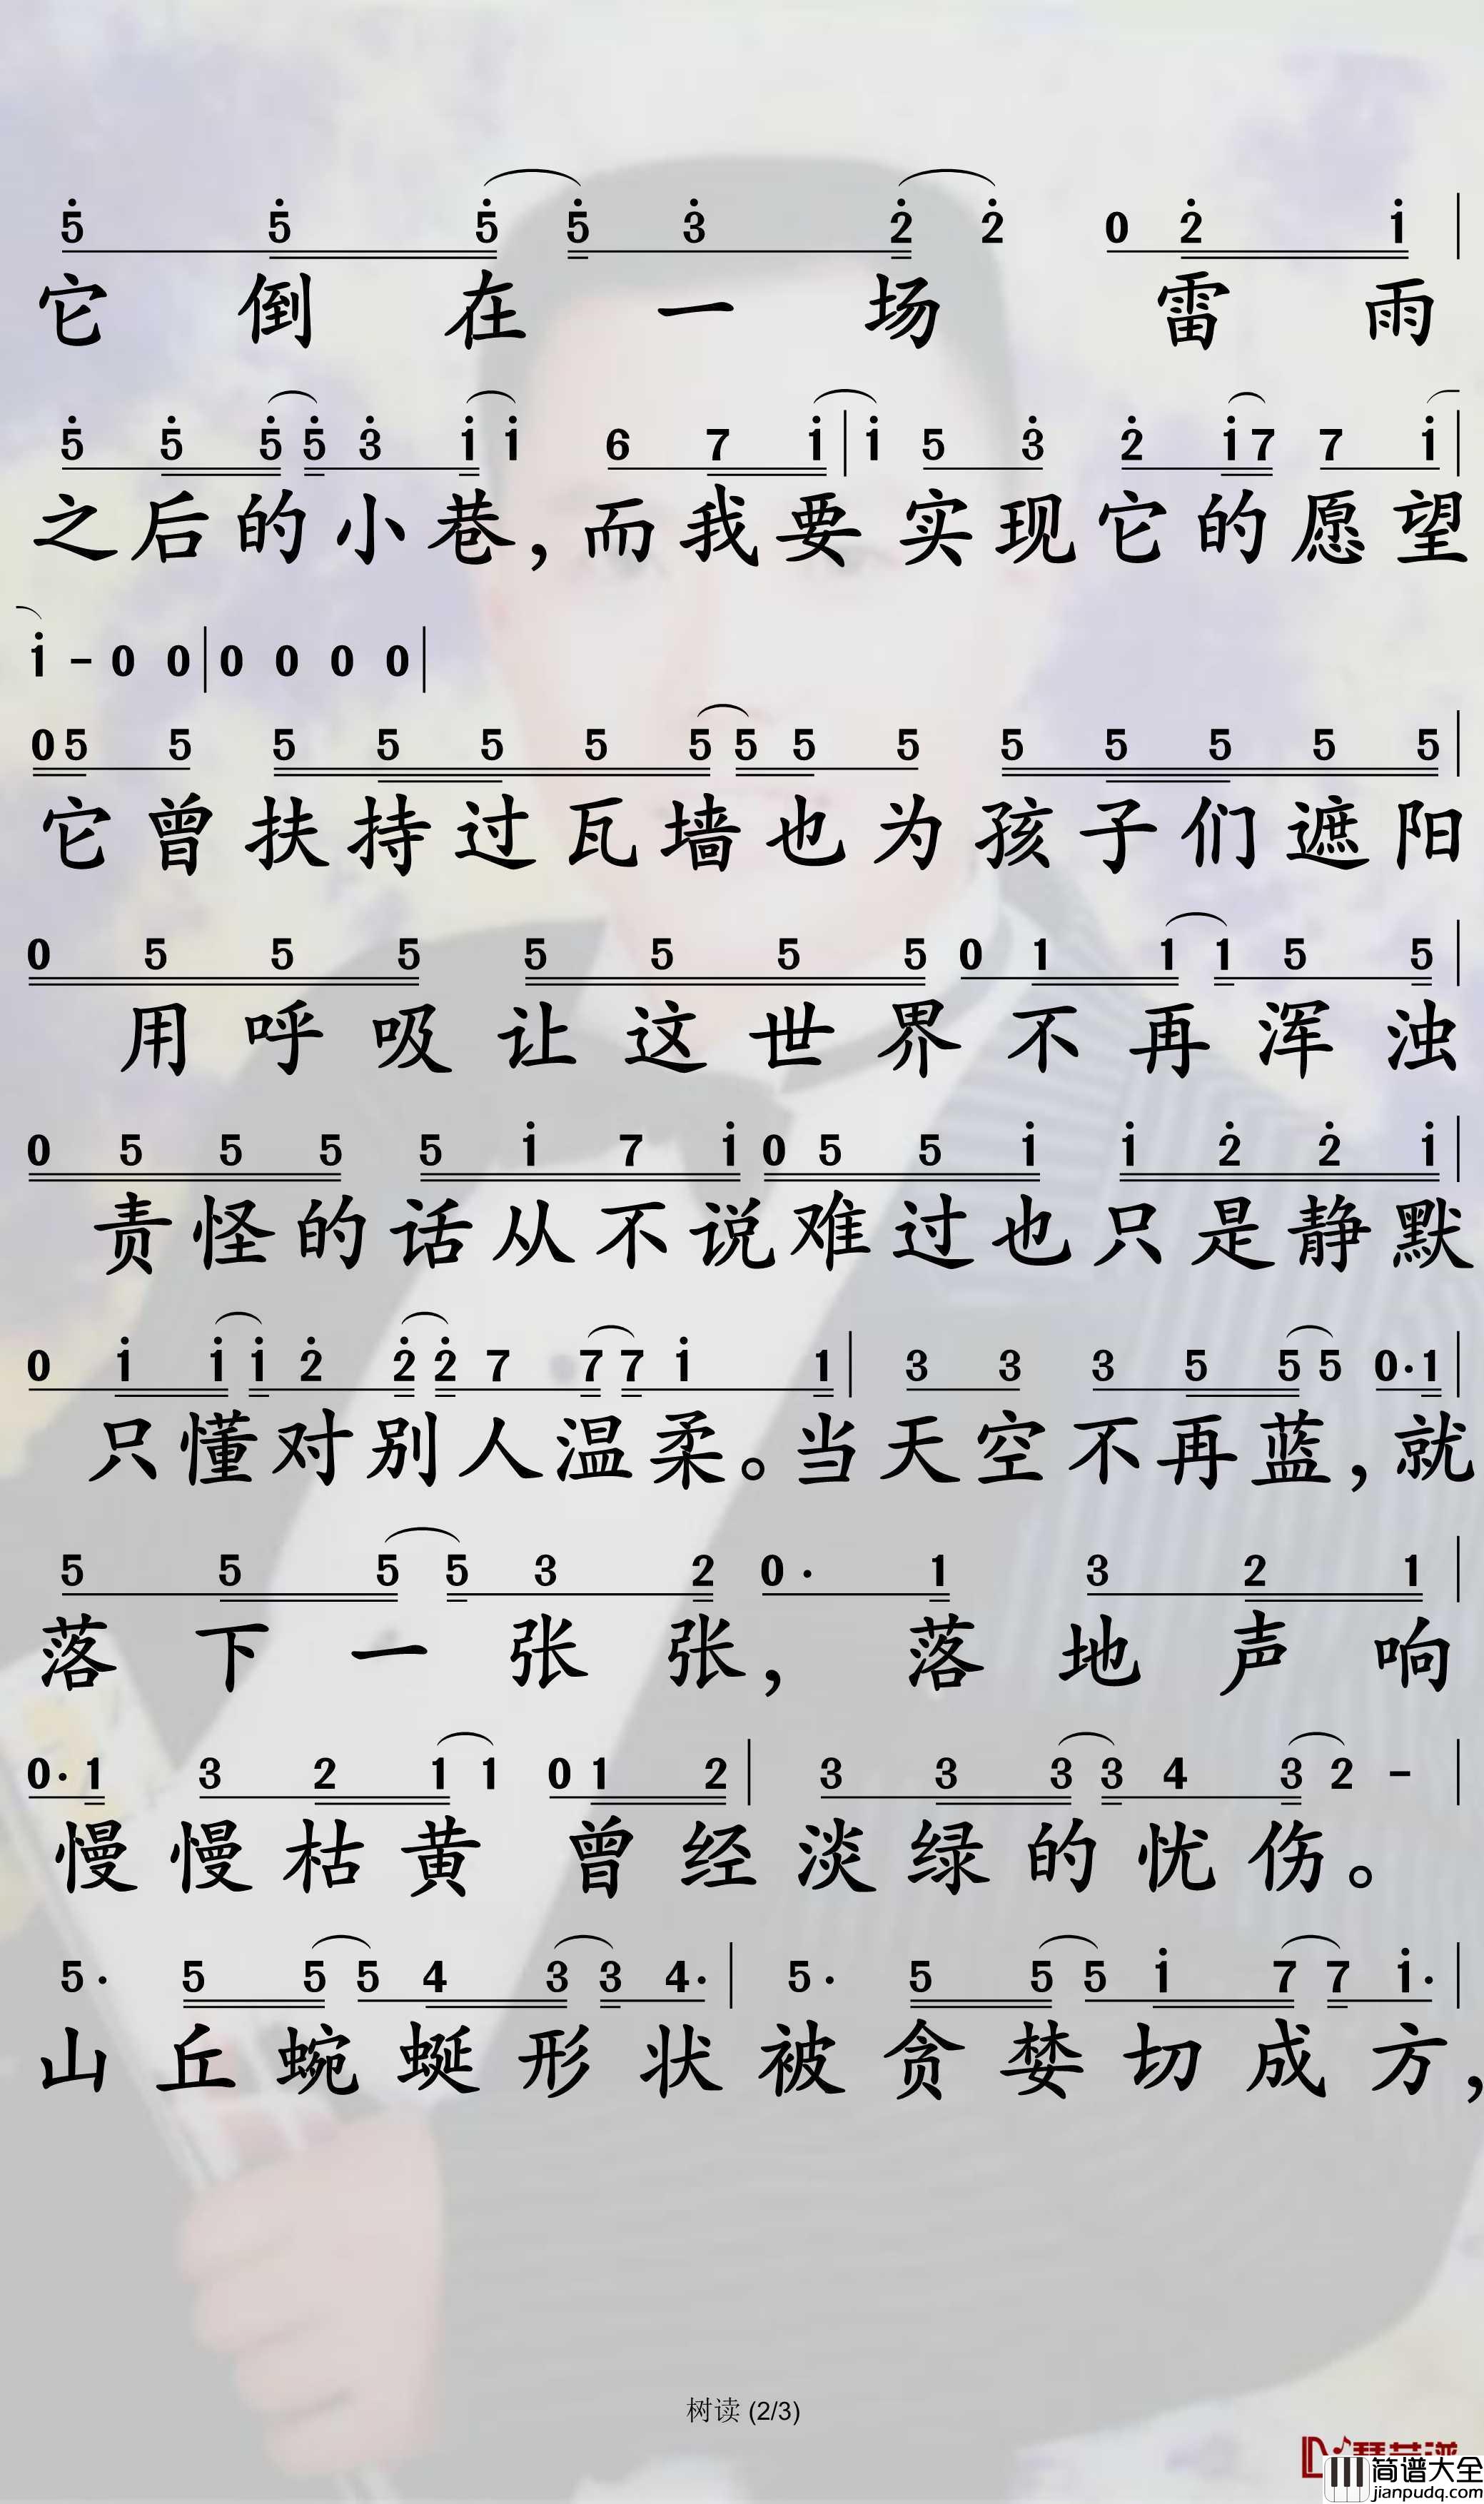 5̇ 5̇ 5̇ 5̇ 3̇ 2̇ 2̇ 0 2̇ 1̇ |
它倒在一场 雷雨
5̇ 5̇ 5̇ 5̇ 3̇ 1̇ 1̇ 6 7 1̇ | 1̇ 5 3̇ 2̇ 1̇ 7 7 1̇ |
之后的小巷，而我要实现它的愿望
1̇ - 0 0 | 0 0 0 0 |
0 5 5 5 5 5 5 5 5 5 5 5 5 5 5 5 |
它曾扶持过瓦墙也为孩子们遮阳
0 5 5 5 5 5 5 5 0 1 1 1 5 5 |
用呼吸让这世界不再浑浊
0 5 5 5 5 1̇ 7 1̇ 0 5 5 1̇ 1̇ 2̇ 2̇ 1̇ |
责怪的话从不说难过也只是静默
0 1̇ 1̇ 1̇ 2̇ 2̇ 2̇ 7 7 7 1̇ 1 | 3 3 3 5 5 5 0· 1 |
只懂对别人温柔。当天空不再蓝，就
5 5 5 5 3 2 0· 1 3 2 1 |
落下一张张，落地声响
0· 1 3 2 1 1 0 1 2 | 3 3 3 3 4 3 2 - |
慢慢枯黄 曾经淡绿的忧伤。
5· 5 5 5 4 3 3 4· | 5· 5 5 5 1̇ 7 7 1̇· |
山丘蜿蜒形状被贪婪切成方，
树读 (2/3)
简谱大全
jianpudq.com